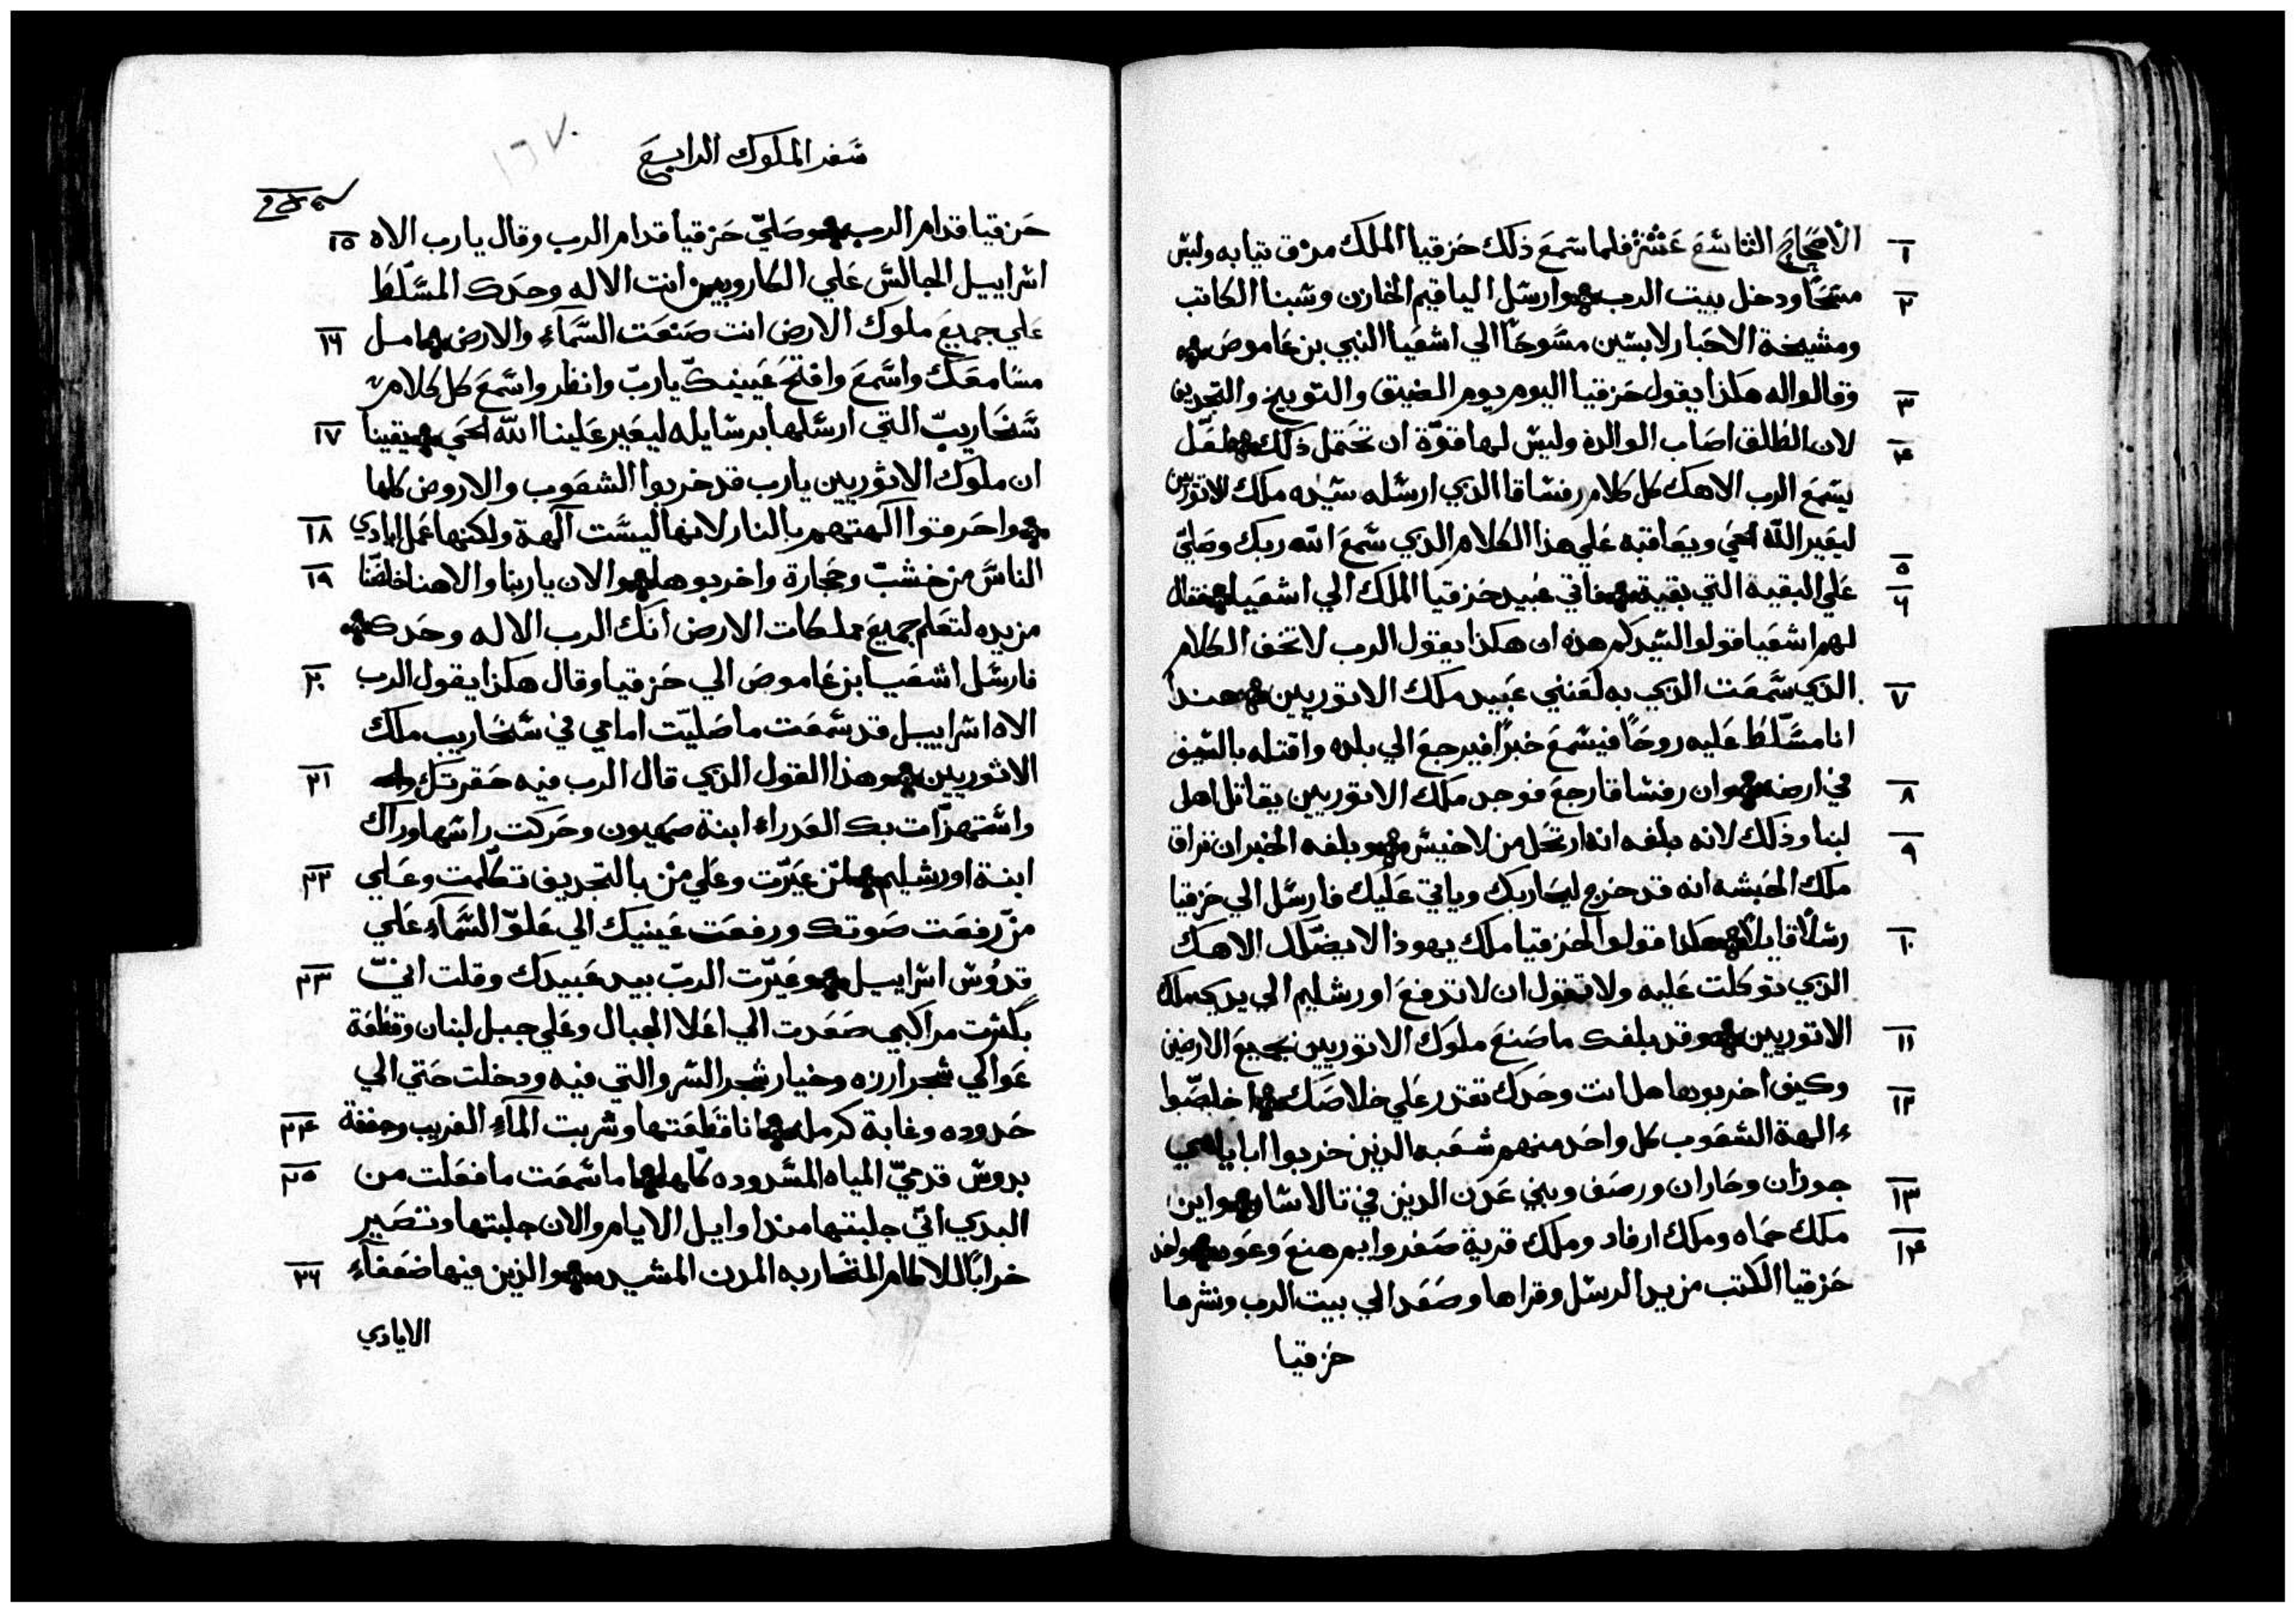 الاصحاح التاسع عشر فلما سمع ذلك حزقيا الملك مزق تيابه ولبس
١
مسحًا ودخل بيت الرب وارسل الياقيم الخازن وشبنا الكاتب
٢
ومشيخة الاحبار لابسين مسوحًا الي اشعيا النبي بن عاموص
وقالوا له هكذا يقول حزقيا اليوم يوم الضيق والتوبيخ والتجديف
٣
لان الطلق اصاب الوالدة وليس لها قوّة ان تحتمل ذلك لعل
٤
يسمع الرب الاهك كل كلام رفشاقا الذي ارسله سيده ملك الاتوريين
ليعير الله الحي ويعاقبه علي هذا الكلام الذي سمع الله ربك وصلي
علي البقيه التي بقية فاتي عبيد حزقيا الملك الي اشعيا فقال
٥
٦
لهم اشعيا قولوا لسيدكم هذه ان هكذا يقول الرب لا تخف الكلام
الذي سمعت الذي به لعنني عبيد ملك الاتوريين هندا
٧
انا مسلط عليه روحًا فيسمع خبرًا فيرجع الي بلده واقتله بالسيف
في ارضه وان رفشاقا رجع فوجد ملك الاتوريين يقاتل اهل
٨
لبنا وذلك لانه بلغه انه ارتحل من لاخيش وبلغه الخبر ان تراق
٩
ملك الحبشه انه قد خرج ليحاربك وياتي عليك فارسل الي حزقيا
رسلًا قايلًا هكذا قولوا لحزقيا ملك يهوذا لا يضلك الاهك
١٠
الذي توكلت عليه ولا تقول ان لا تدفع اورشليم الي يد ملك
الاتوريين وقد بلغك ما صنع ملوك الاتوريين بجميع الارضين
١١
وكيف اخربوها هل انت وحدك تقدر علي خلاصك اخلصوا
١٢
ءالهة الشعوب كل واحد منهم شعبه الذين خربوا ابايي
جوزان وحاران ورصف وبني عدن الدين في تالاسار واين
١٣
ملك حماه وملك ارفاد وملك قرية صفروايم هنع وعوه واخذ
١٤
حزقيا الكتب من يد الرسل وقراها وصعد الي بيت الرب ونشرها
حزقيا
١٦٧
سفر الملوك الرابع
حزقيا قدام الرب وصلي حزقيا قدام الرب وقال يا رب الاه
١٥
اسراييل الجالس علي الكاروبيين انت الاله وحدك المسلط
علي جميع ملوك الارض انت صنعت السمآء والارض امل
١٦
مسامعك واسمع وافتح عينيك يا رب وانظر واسمع كل كلام
سنحاريب التي ارسلها برسايله ليعير علينا الله الحي يقينا
١٧
ان ملوك الاثوريين يا رب قد خربوا الشعوب والاروض كلها
واحرقوا آلهتهم بالنار لانها ليست آلهة ولكنها عمل ايادي
١٨
الناس من خشب وحجارة واخربوها والان يا ربنا والاهنا خلصنا
١٩
من يده لتعلم جميع مملكات الارض انك الرب الاله وحدك
فارسل اشعيا بن عاموص الي حزقيا وقال هكذا يقول الرب
٢٠
الاه اسراييل قد سمعت ما صليت امامي في سنحاريب ملك
الاثوريين وهذا القول الذي قال الرب فيه حقرتك
٢١
واستهزات بك العدراء ابنة صهيون وحركت راسها وراك
ابنة اورشليم لمن عيرت وعلي من بالتجديف تكلمت وعلي
٢٢
من رفعت صوتك ورفعت عينيك الي علو السمآء علي
قدوس اسراييل وعيرت الرب بيد عبيدك وقلت اني
٢٣
بكثرت مراكبي صعدت الي اعلا الجبال وعلي جبل لبنان وقطعة
عوالي شجر ارزه وخيار شجر السرو التي فيه ودخلت حتي الي
حدوده وغابة كرمل انا قطعتها وشربت المآء الغريب وجففة
٢٤
بدوس قدمي المياه المسدوده كلها اما سمعت ما فعلت من
٢٥
البدي اني جلبتها مندا وايل الايام والان جلبتها وتصير
خرابًا للاكام المتحاربه المدن المشيده والذين فيها ضعفآء
٢٦
الايادي